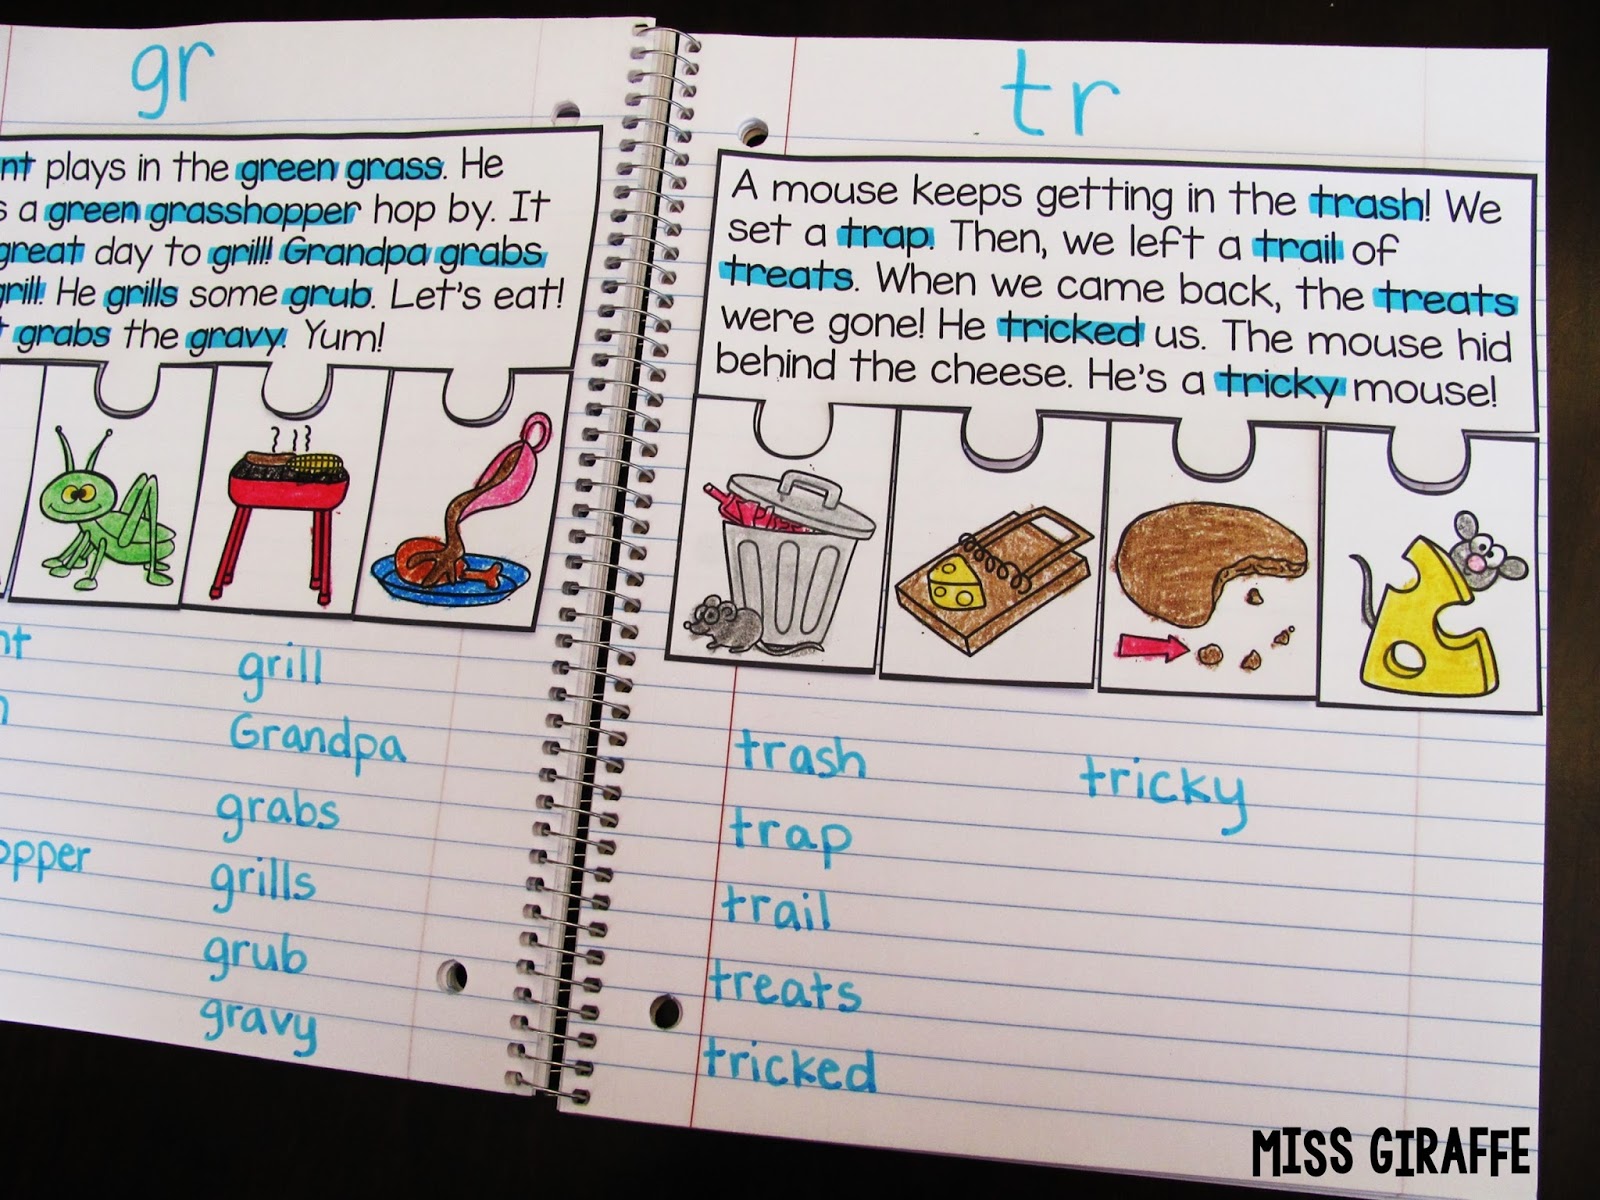 gr
plays in the green grass. He
a green grasshopper hop by. It
great day to grill! Grandpa grabs
grill! He grills some grub. Let's eat!
grabs the gravy. Yum!
grill
Grandpa
grabs
grills
grub
gravy
tr
A mouse keeps getting in the trash! We
set a trap. Then, we left a trail of
treats. When we came back, the treats
were gone! He tricked us. The mouse hid
behind the cheese. He's a tricky mouse!
trash
trap
trail
treats
tricked
tricky
MISS GIRAFFE